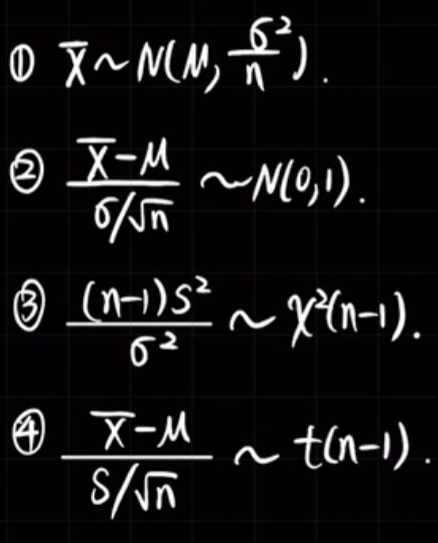 ① X̄ ~ N(μ, σ²/n).
② (X̄-μ)/(σ/√n) ~ N(0,1).
③ (n-1)S²/σ² ~ χ²(n-1).
④ (X̄-μ)/(S/√n) ~ t(n-1).